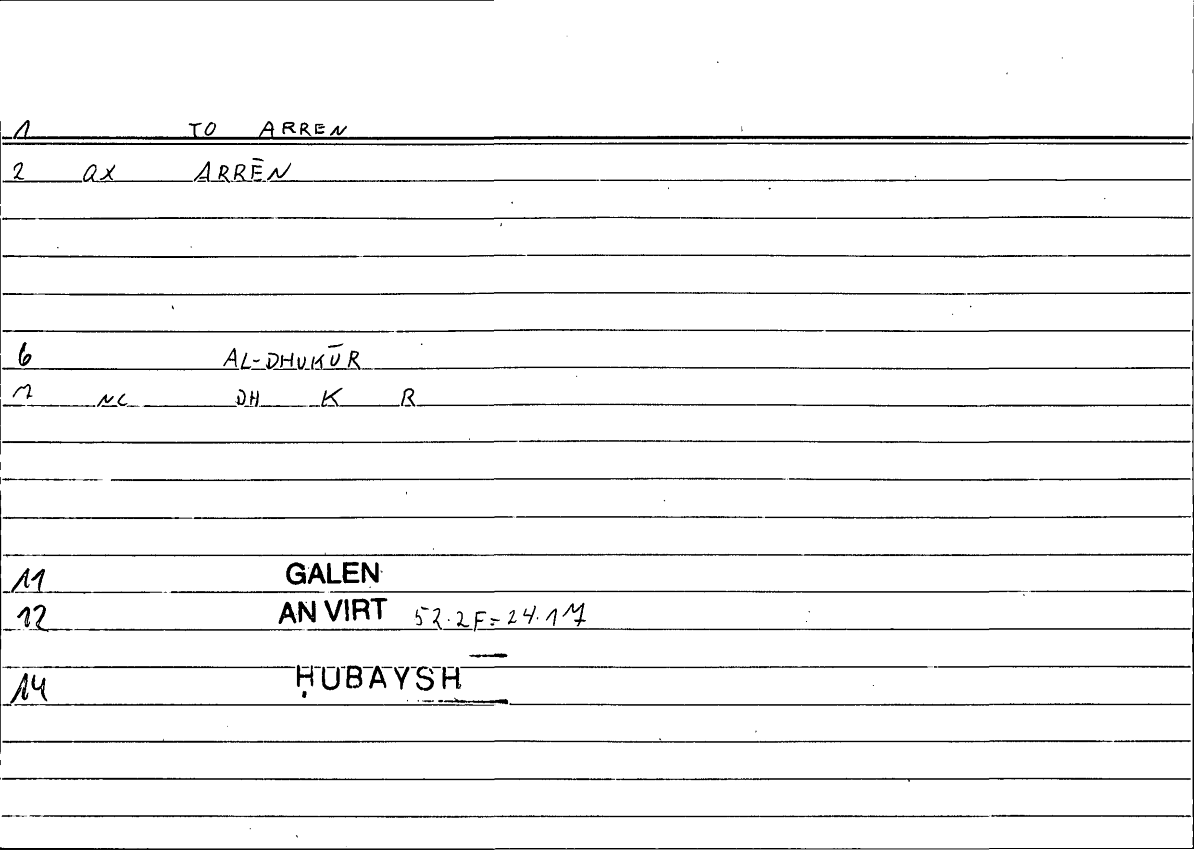 1 TO ARREN
2 ax ARRĒN
6 AL-DHUKŪR
7 NC DH K R
11 GALEN
12 AN VIRT 52.2F=24.17
14 ḤUBAYSH